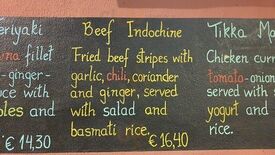 eriyaki
una fillet
-ginger-
uce with
oles and
€ 14,30
Beef Indochine
Fried beef stripes with
garlic, chili, coriander
and ginger, served
with salad and
basmati rice.
€ 16,40
Tikka Ma
Chicken curr
tomato-onion
served with
yogurt and
rice.